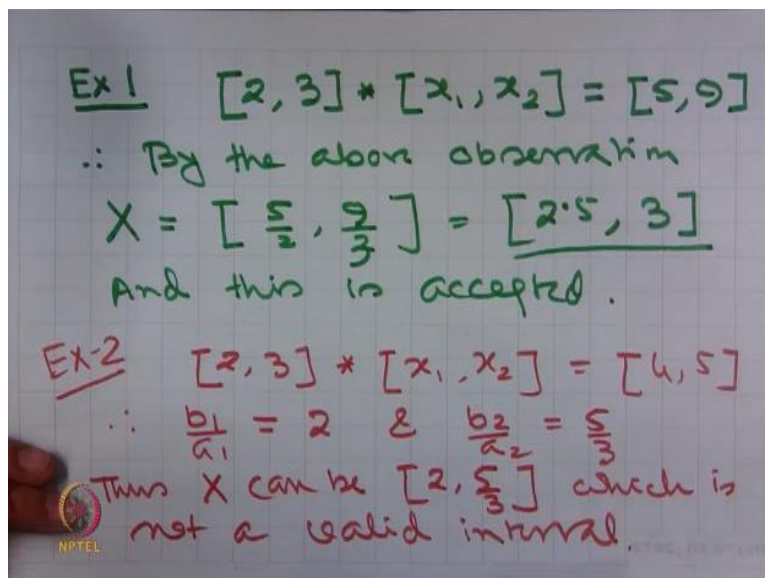 Ex 1 [2, 3] * [x₁, x₂] = [5, 9]
∴ By the above observation
X = [ 5/2 , 9/3 ] = [2.5, 3]
And this is accepted.
Ex-2 [2, 3] * [x₁, x₂] = [4, 5]
∴ b₁/a₁ = 2 & b₂/a₂ = 5/3
Thus X can be [2, 5/3] which is
not a valid interval.
NPTEL